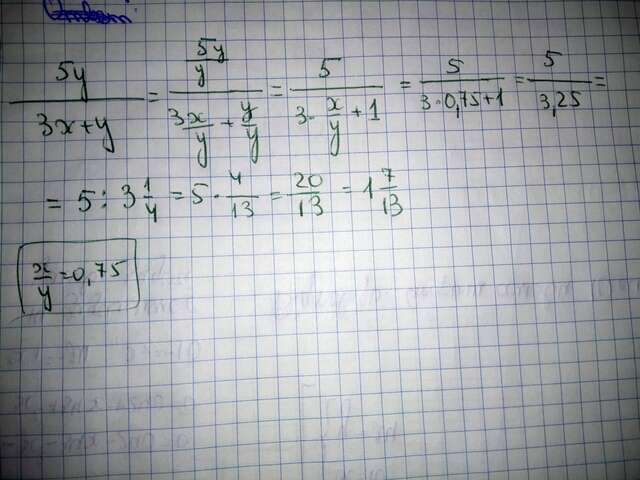 5y/(3x+y) = (5y/y)/(3x/y + y/y) = 5/(3·x/y + 1) = 5/(3·0,75+1) = 5/3,25 =
= 5 : 3 1/4 = 5 · 4/13 = 20/13 = 1 7/13
x/y = 0,75